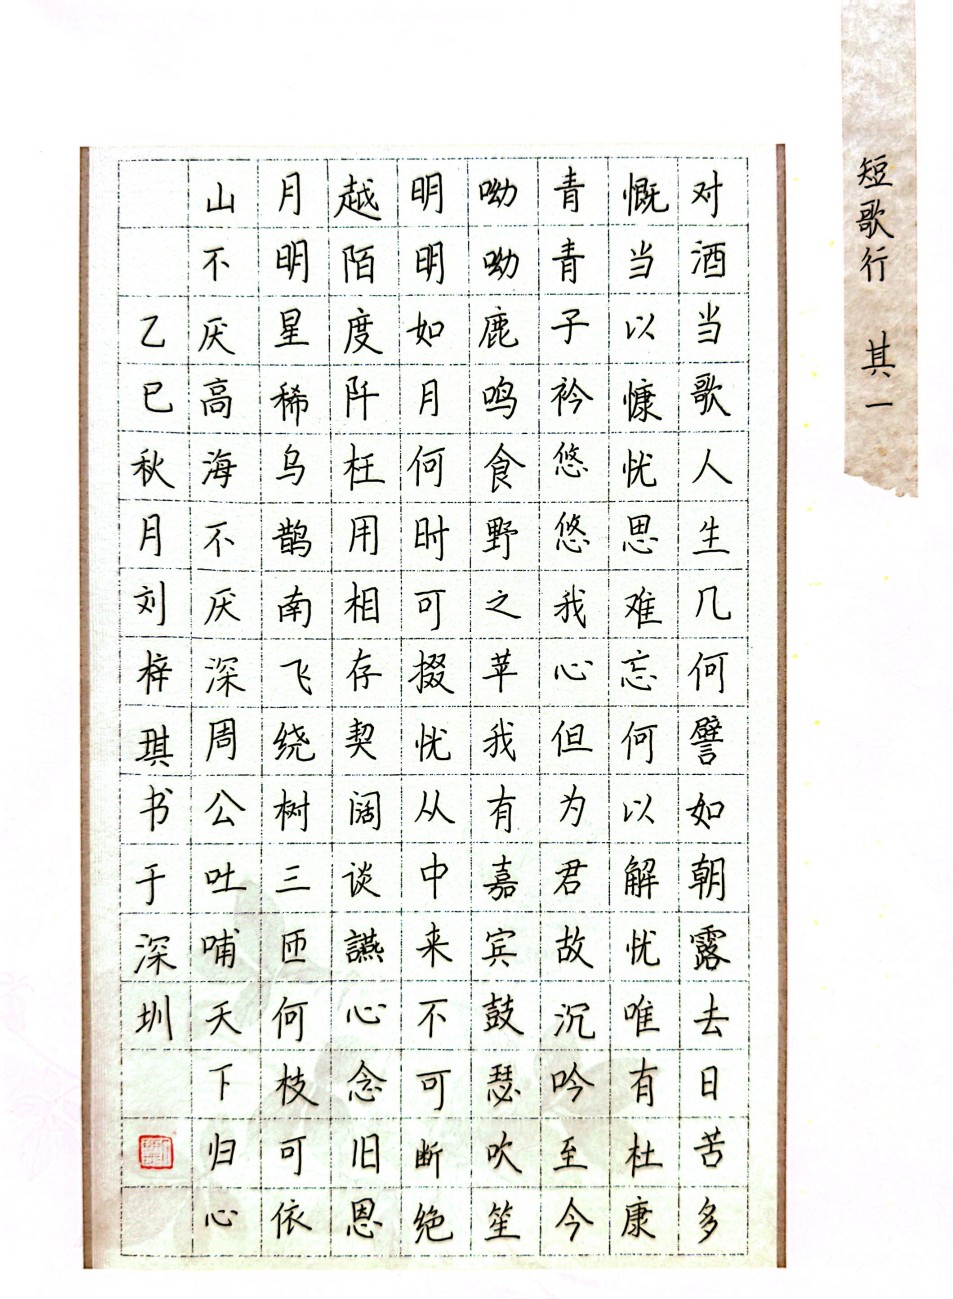 短歌行 其一
对酒当歌人生几何譬如朝露去日苦多
慨当以慷忧思难忘何以解忧唯有杜康
青青子衿悠悠我心但为君故沉吟至今
呦呦鹿鸣食野之苹我有嘉宾鼓瑟吹笙
明明如月何时可掇忧从中来不可断绝
越陌度阡枉用相存契阔谈讌心念旧恩
月明星稀乌鹊南飞绕树三匝何枝可依
山不厌高海不厌深周公吐哺天下归心
乙巳秋月刘梓琪书于深圳